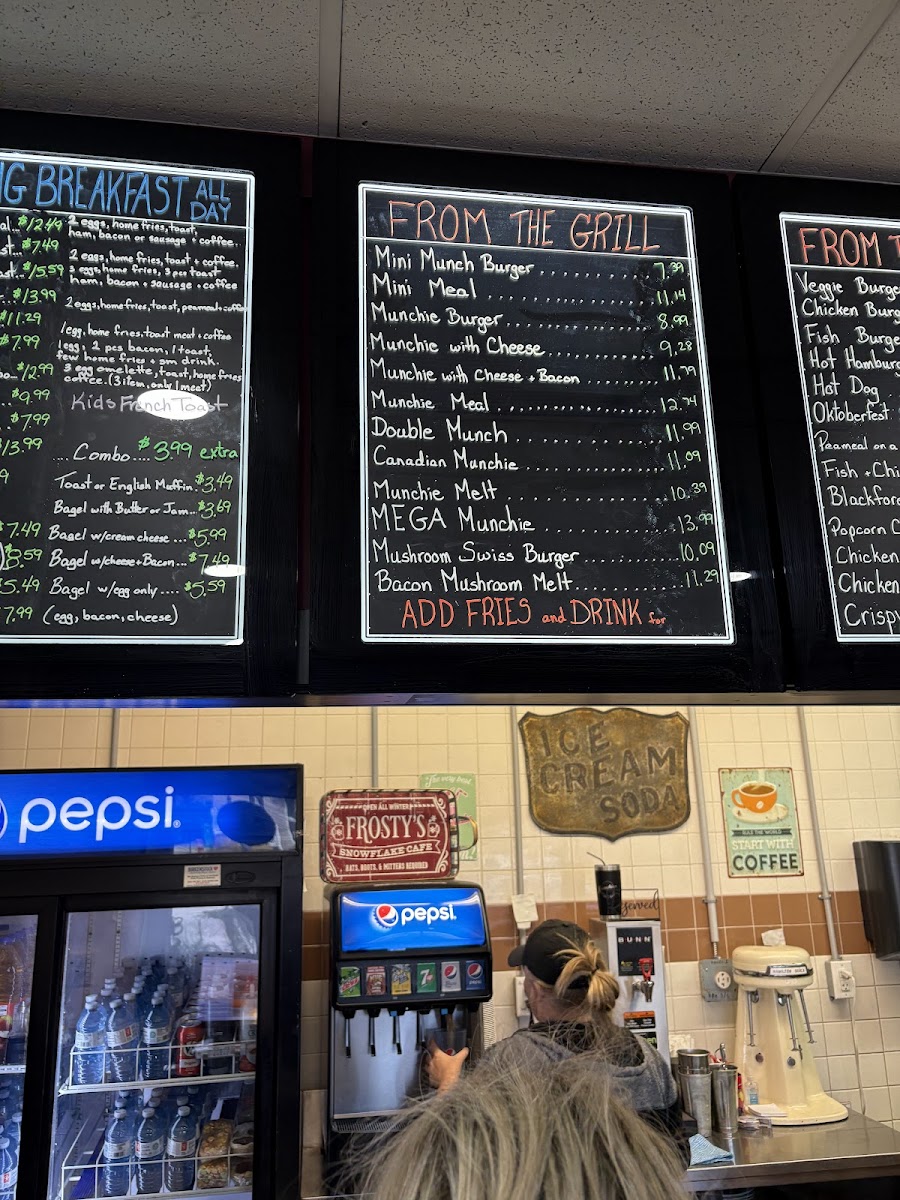 NG BREAKFAST ALL DAY
al... $12.49 2 eggs, home fries, toast,
ham, bacon or sausage + coffee.
st... $7.49 2 eggs, home fries, toast + coffee.
ast.. $15.59 3 eggs, home fries, 3 pcs toast
ham, bacon + sausage + coffee
$13.99 2 eggs, home fries, toast, peameal + coffee
$11.29 1 egg, home fries, toast meat + coffee
$7.99 1 egg, 2 pcs bacon, 1 toast,
few home fries + sm drink.
$12.99 3 egg omelette, toast, home fries
coffee. (3 item, only 1 meat)
$9.99 Kids French Toast
$7.99
$13.99 ... Combo.... $3.99 extra
Toast or English Muffin. $3.49
Bagel with Butter or Jam... $3.69
$7.49 Bagel w/cream cheese ... $5.99
$8.59 Bagel w/cheese + Bacon... $7.49
$5.49 Bagel w/egg only .... $5.59
7.99 (egg, bacon, cheese)
FROM THE GRILL
Mini Munch Burger 7.39
Mini Meal 11.14
Munchie Burger 8.99
Munchie with Cheese 9.28
Munchie with Cheese + Bacon 11.79
Munchie Meal 12.74
Double Munch 11.99
Canadian Munchie 11.09
Munchie Melt 10.39
MEGA Munchie 13.99
Mushroom Swiss Burger 10.09
Bacon Mushroom Melt 11.29
ADD FRIES and DRINK for
FROM T
Veggie Burge
Chicken Burg
Fish Burge
Hot Hamburg
Hot Dog
Oktoberfest
Peameal on a
Fish + Chi
Blackfore
Popcorn C
Chicken
Chicken
Crispy
pepsi
OPEN ALL WINTER
FROSTY'S
SNOWFLAKE CAFE
HATS, BOOTS, & MITTENS REQUIRED
The very best
ICE
CREAM
SODA
RULE THE WORLD
START WITH
COFFEE
pepsi
7UP
served
BUNN
HAMILTON BEACH